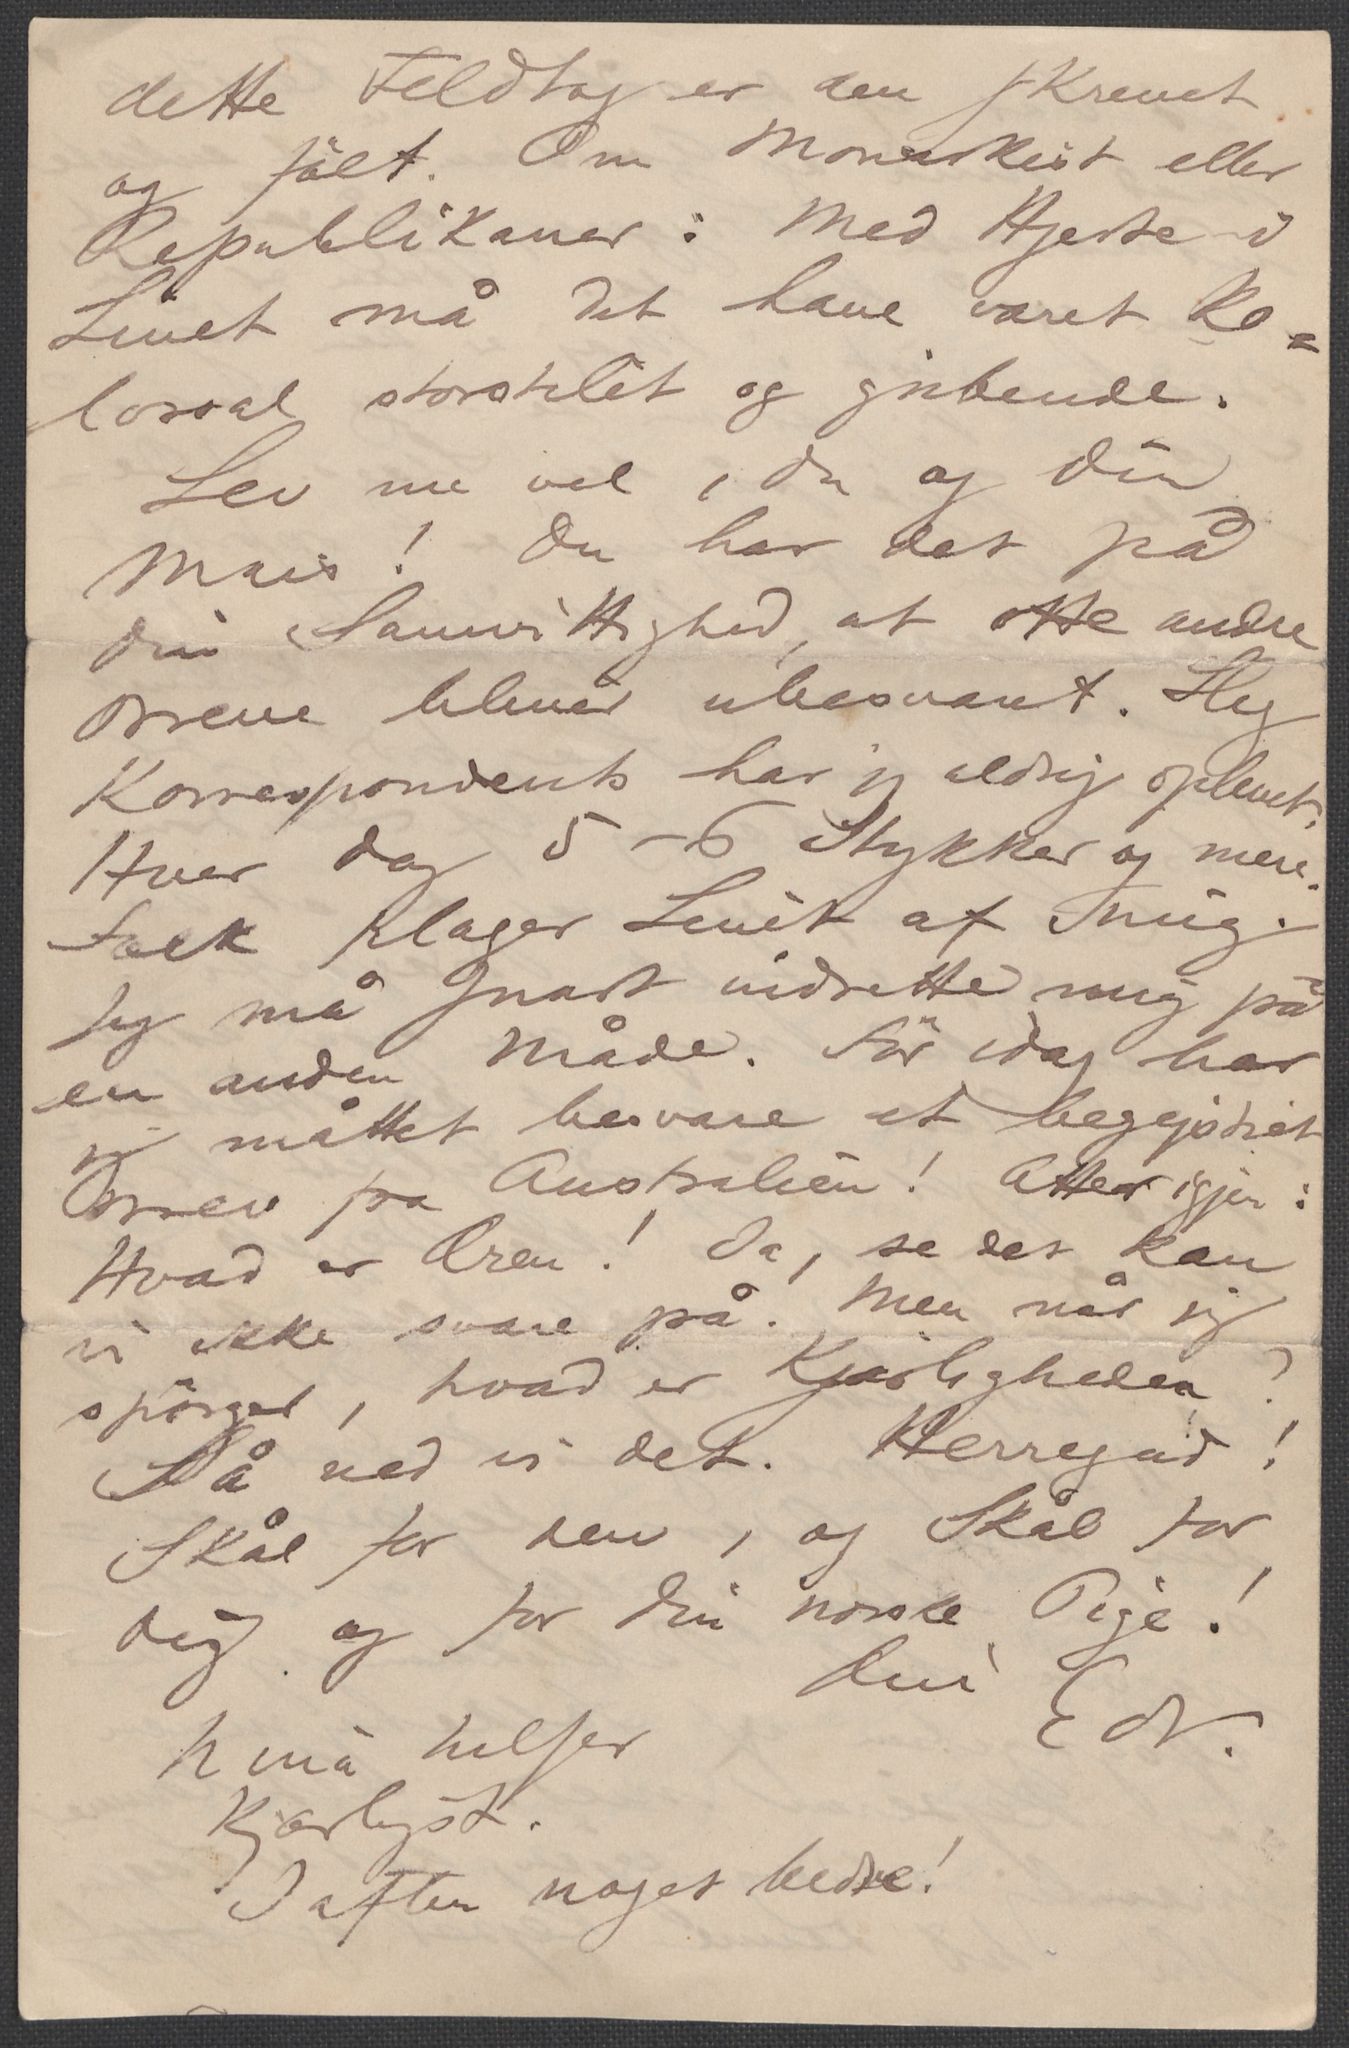 dette Feldtog er den skrevet
og følt. Om Monarkist eller
Republikaner: Med Hjerte i
Livet må det have været ko=
lossal storstilet og gribende.
Lev nu vel, du og din
Mais! Du har det på
din Samvittighed, at otte andre
Breve bliver ubesvaret. Slig
Korrespondents har jeg aldrig oplevet.
Hver Dag 5–6 Stykker og mere.
Folk plager Livet af mig.
Jeg må snart indrette mig på
en anden Måde. Før idag har
jeg måttet besvare et begejstret
Brev fra Australien! Atter igjen:
Hvad er Æren! Ja, se det kan
vi ikke svare på. Men når jeg
spørger, hvad er Kjærligheden?
Så ved vi det. Herregud!
Skål for den, og Skål for
dig og for din norske Pige!
Din Edv.
Nina hilser
kjærligst.
Iaften noget bedre!